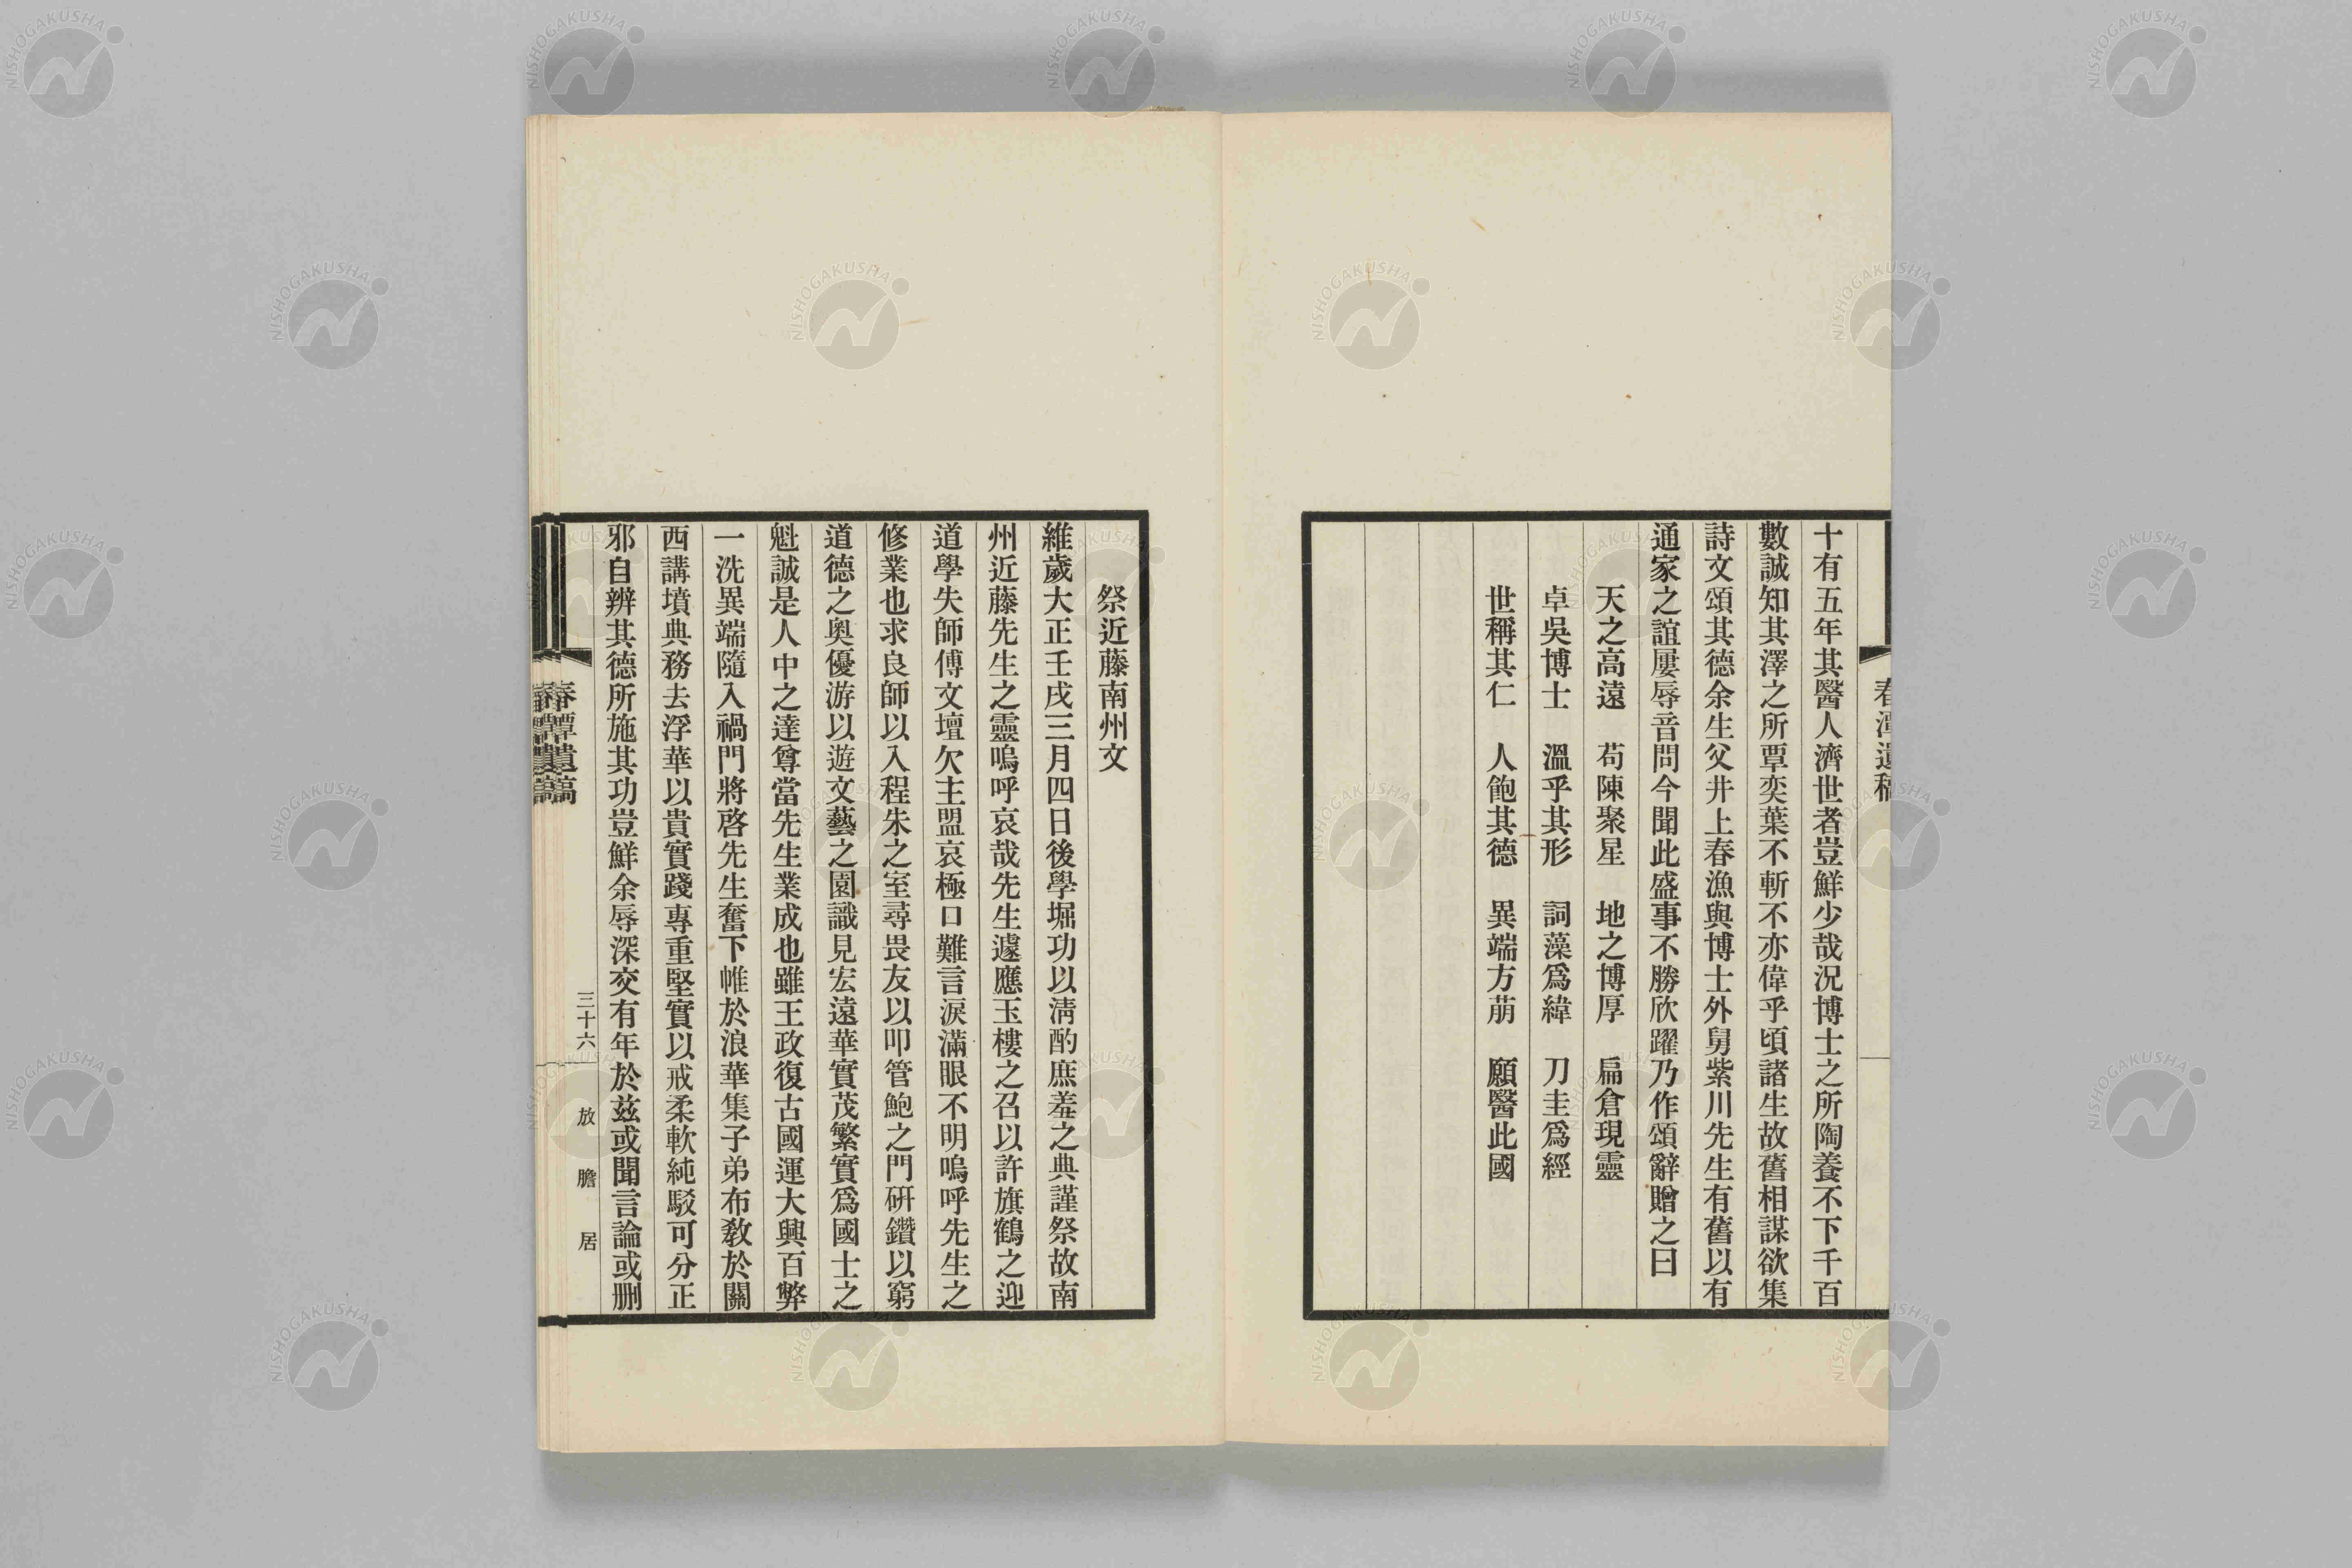 春潭遺稿
十有五年其醫人濟世者豈鮮少哉況博士之所陶養不下千百
數誠知其澤之所覃奕葉不斬不亦偉乎頃諸生故舊相謀欲集
詩文頌其德余生父井上春漁與博士外舅紫川先生有舊以有
通家之誼屢辱音問今聞此盛事不勝欣躍乃作頌辭贈之曰
天之高遠　苟陳聚星　地之博厚　扁倉現靈
卓吳博士　溫乎其形　詞藻爲緯　刀圭爲經
世稱其仁　人飽其德　異端方萠　願醫此國
祭近藤南州文
維歲大正壬戌三月四日後學堀功以淸酌庶羞之典謹祭故南
州近藤先生之靈嗚呼哀哉先生遽應玉樓之召以許旗鶴之迎
道學失師傅文壇欠主盟哀極口難言淚滿眼不明嗚呼先生之
修業也求良師以入程朱之室尋畏友以叩管鮑之門硏鑽以窮
道德之奧優游以遊文藝之園識見宏遠華實茂繁實爲國士之
魁誠是人中之達尊當先生業成也雖王政復古國運大興百弊
一洗異端隨入禍門將啓先生奮下帷於浪華集子弟布敎於關
西講墳典務去浮華以貴實踐專重堅實以戒柔軟純駁可分正
邪自辨其德所施其功豈鮮余辱深交有年於茲或聞言論或刪
春潭遺稿
三十六
放膽居
NISHOGAKUSHA